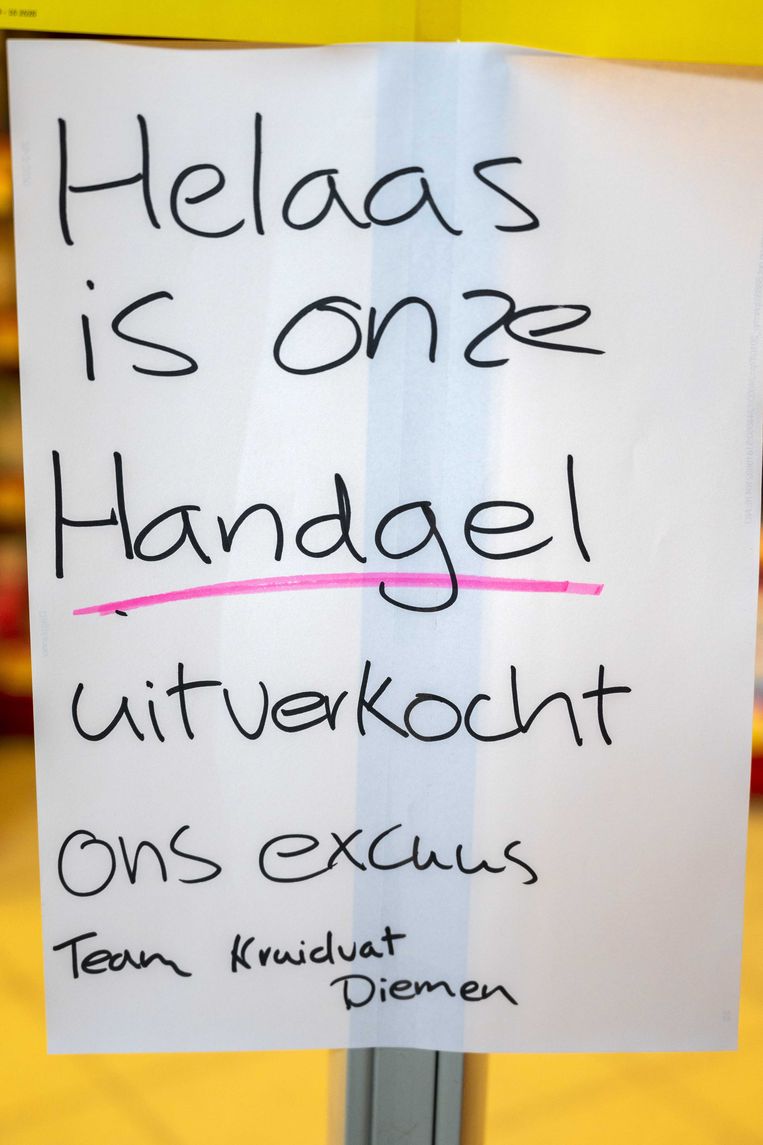 Helaas
is onze
Handgel
uitverkocht
ons excuus
Team Kruidvat
Diemen